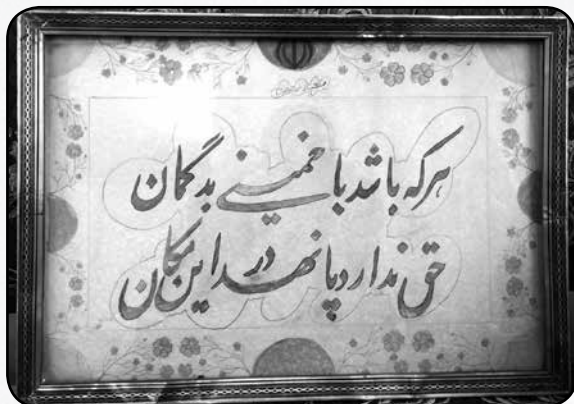 هرکه باشد با خمینی بدگمان
حق ندارد پا نهد در این مکان